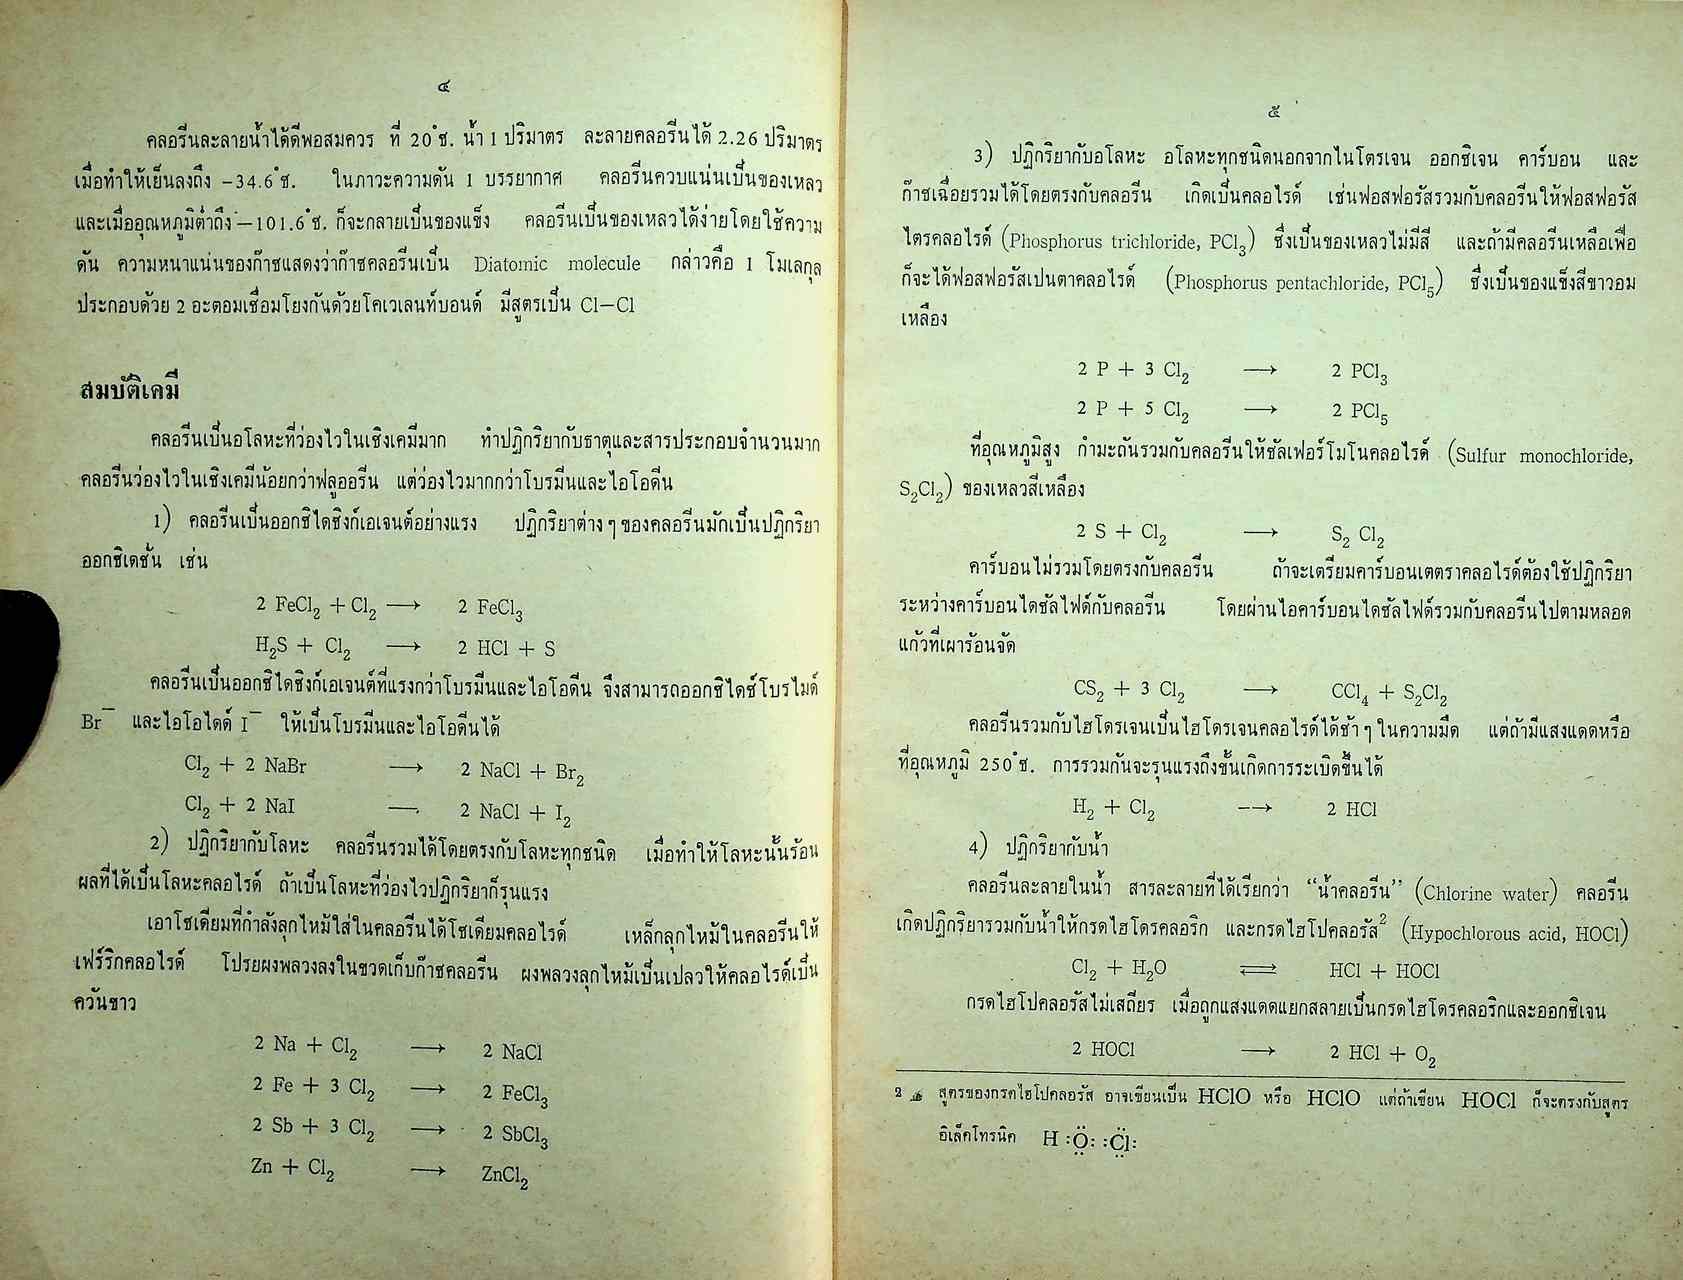 ๔
คลอรีนละลายน้ำได้ดีพอสมควร ที่ 20°ช. น้ำ 1 ปริมาตร ละลายคลอรีนได้ 2.26 ปริมาตร
เมื่อทำให้เย็นลงถึง –34.6°ช. ในภาวะความดัน 1 บรรยากาศ คลอรีนควบแน่นเป็นของเหลว
และเมื่ออุณหภูมิต่ำถึง –101.6°ช. ก็จะกลายเป็นของแข็ง คลอรีนเป็นของเหลวได้ง่ายโดยใช้ความ
ดัน ความหนาแน่นของก๊าซแสดงว่าก๊าซคลอรีนเป็น Diatomic molecule กล่าวคือ 1 โมเลกุล
ประกอบด้วย 2 อะตอมเชื่อมโยงกันด้วยโคเวเลนท์บอนด์ มีสูตรเป็น Cl–Cl
สมบัติเคมี
คลอรีนเป็นอโลหะที่ว่องไวในเชิงเคมีมาก ทำปฏิกริยากับธาตุและสารประกอบจำนวนมาก
คลอรีนว่องไวในเชิงเคมีน้อยกว่าฟลูออรีน แต่ว่องไวมากกว่าโบรมีนและไอโอดีน
1) คลอรีนเป็นออกซิไดซิงก์เอเจนต์อย่างแรง ปฏิกริยาต่าง ๆ ของคลอรีนมักเป็นปฏิกริยา
ออกซิเดชั่น เช่น
2 FeCl₂ + Cl₂ ⟶ 2 FeCl₃
H₂S + Cl₂ ⟶ 2 HCl + S
คลอรีนเป็นออกซิไดซิงก์เอเจนต์ที่แรงกว่าโบรมีนและไอโอดีน จึงสามารถออกซิไดซ์โบรไมด์
Br⁻ และไอโอไดด์ I⁻ ให้เป็นโบรมีนและไอโอดีนได้
Cl₂ + 2 NaBr ⟶ 2 NaCl + Br₂
Cl₂ + 2 NaI ⟶ 2 NaCl + I₂
2) ปฏิกริยากับโลหะ คลอรีนรวมได้โดยตรงกับโลหะทุกชนิด เมื่อทำให้โลหะนั้นร้อน
ผลที่ได้เป็นโลหะคลอไรด์ ถ้าเป็นโลหะที่ว่องไวปฏิกริยาก็รุนแรง
เอาโซเดียมที่กำลังลุกไหม้ใส่ในคลอรีนได้โซเดียมคลอไรด์ เหล็กลุกไหม้ในคลอรีนให้
เฟร์ริกคลอไรด์ โปรยผงพลวงลงในขวดเก็บก๊าซคลอรีน ผงพลวงลุกไหม้เป็นเปลวให้คลอไรด์เป็น
ควันขาว
2 Na + Cl₂ ⟶ 2 NaCl
2 Fe + 3 Cl₂ ⟶ 2 FeCl₃
2 Sb + 3 Cl₂ ⟶ 2 SbCl₃
Zn + Cl₂ ⟶ ZnCl₂
๕
3) ปฏิกริยากับอโลหะ อโลหะทุกชนิดนอกจากไนโตรเจน ออกซิเจน คาร์บอน และ
ก๊าซเฉื่อยรวมได้โดยตรงกับคลอรีน เกิดเป็นคลอไรด์ เช่นฟอสฟอรัสรวมกับคลอรีนให้ฟอสฟอรัส
ไตรคลอไรด์ (Phosphorus trichloride, PCl₃) ซึ่งเป็นของเหลวไม่มีสี และถ้ามีคลอรีนเหลือเฟือ
ก็จะได้ฟอสฟอรัสเปนตาคลอไรด์ (Phosphorus pentachloride, PCl₅) ซึ่งเป็นของแข็งสีขาวอม
เหลือง
2 P + 3 Cl₂ ⟶ 2 PCl₃
2 P + 5 Cl₂ ⟶ 2 PCl₅
ที่อุณหภูมิสูง กำมะถันรวมกับคลอรีนให้ซัลเฟอร์โมโนคลอไรด์ (Sulfur monochloride,
S₂Cl₂) ของเหลวสีเหลือง
2 S + Cl₂ ⟶ S₂ Cl₂
คาร์บอนไม่รวมโดยตรงกับคลอรีน ถ้าจะเตรียมคาร์บอนเตตราคลอไรด์ต้องใช้ปฏิกริยา
ระหว่างคาร์บอนไดซัลไฟด์กับคลอรีน โดยผ่านไอคาร์บอนไดซัลไฟด์รวมกับคลอรีนไปตามหลอด
แก้วที่เผาร้อนจัด
CS₂ + 3 Cl₂ ⟶ CCl₄ + S₂Cl₂
คลอรีนรวมกับไฮโดรเจนเป็นไฮโดรเจนคลอไรด์ได้ช้า ๆ ในความมืด แต่ถ้ามีแสงแดดหรือ
ที่อุณหภูมิ 250°ช. การรวมกันจะรุนแรงถึงขั้นเกิดการระเบิดขึ้นได้
H₂ + Cl₂ ⟶ 2 HCl
4) ปฏิกริยากับน้ำ
คลอรีนละลายในน้ำ สารละลายที่ได้เรียกว่า “น้ำคลอรีน” (Chlorine water) คลอรีน
เกิดปฏิกริยารวมกับน้ำให้กรดไฮโดรคลอริก และกรดไฮโปคลอรัส² (Hypochlorous acid, HOCl)
Cl₂ + H₂O ⇌ HCl + HOCl
กรดไฮโปคลอรัสไม่เสถียร เมื่อถูกแสงแดดแยกสลายเป็นกรดไฮโดรคลอริกและออกซิเจน
2 HOCl ⟶ 2 HCl + O₂
2 สูตรของกรดไฮโปคลอรัส อาจเขียนเป็น HClO หรือ HClO แต่ถ้าเขียน HOCl ก็จะตรงกับสูตร
อิเล็คโทรนิค H :Ö: :C̈l: